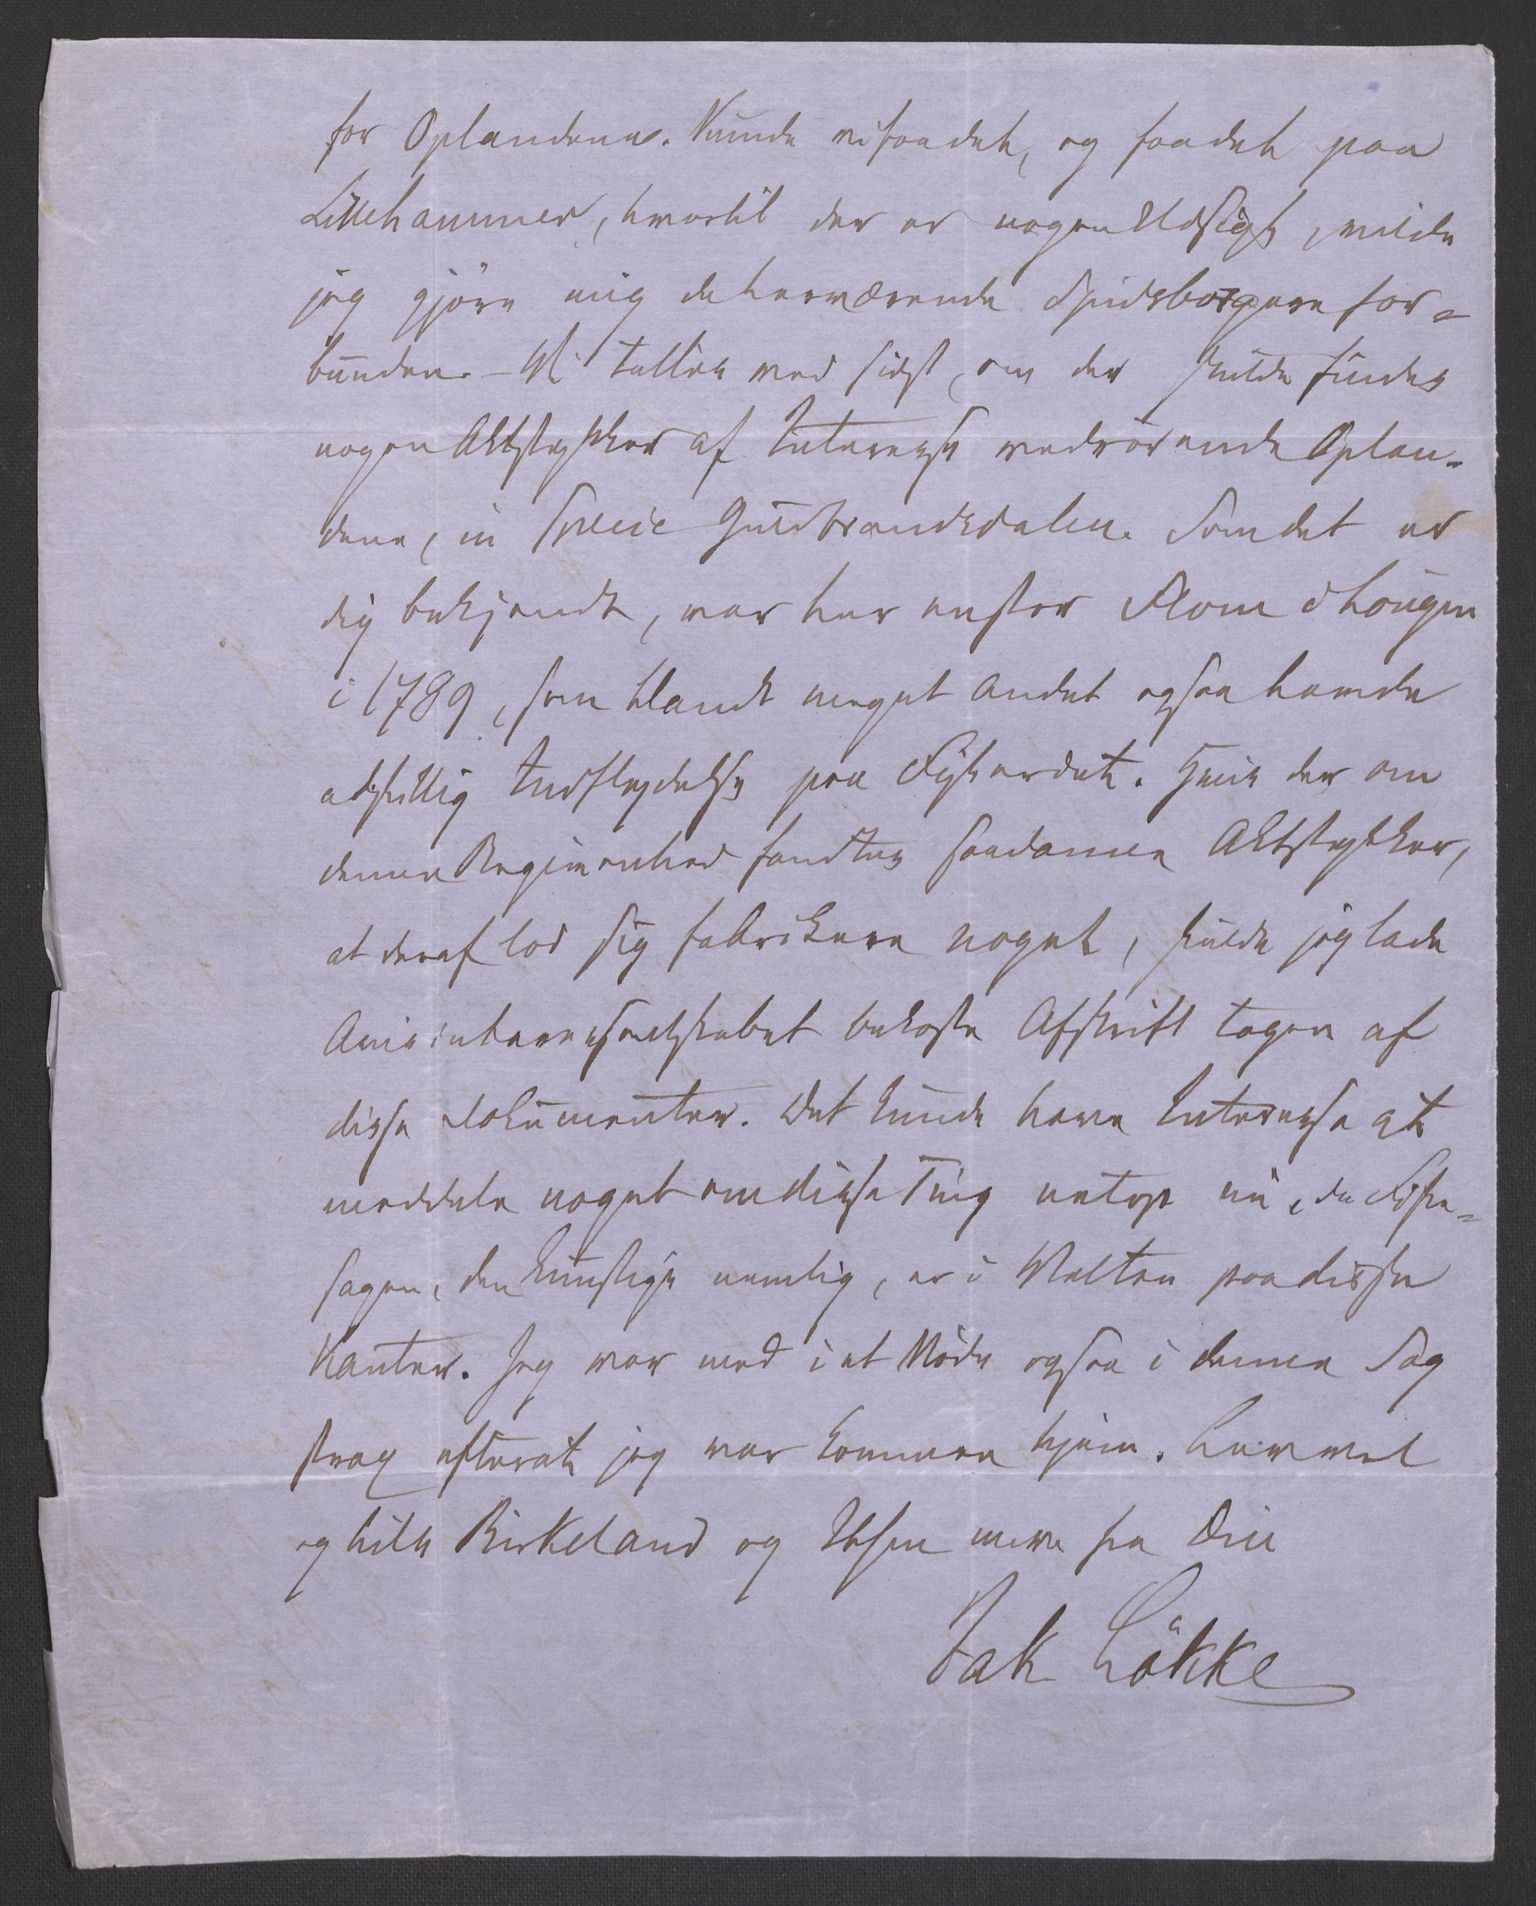 for Oplandene. Kunde vi faa det, og faa det paa
Lillehammer, hvortil der er nogen Udsigt, vilde
jeg gjöre mig de herværende Spidsborgere for-
bunden. – Vi talte ved sidst, om der skulde findes
nogen Aktstykker af Interesse vedrörende Oplan-
dene, in specie Gudbrandsdalen. Som det er
dig bekjendt, var her en stor Flom i Lougen
i 1789, som blandt meget andet ogsaa havde
adskillig Indflydelse paa Fiskeriet. Hvis der om
denne Begivenhed fandtes saadanne Aktstykker,
at deraf lod sig fabrikere noget, skulde jeg lade
Avisinteressentskabet bekoste Afskrift tagen af
disse Dokumenter. Det kunde have Interesse at
meddele noget om disse Ting netop nu, da Fiske-
sagen, den kunstige nemlig, er i Vælten paa disse
Kanter. Jeg var med i et Möde ogsaa i denne Sag
strax efterat jeg var kommen hjem. Lev vel
og hils Birkeland og Ibsen  fra Din
Jak Lökke